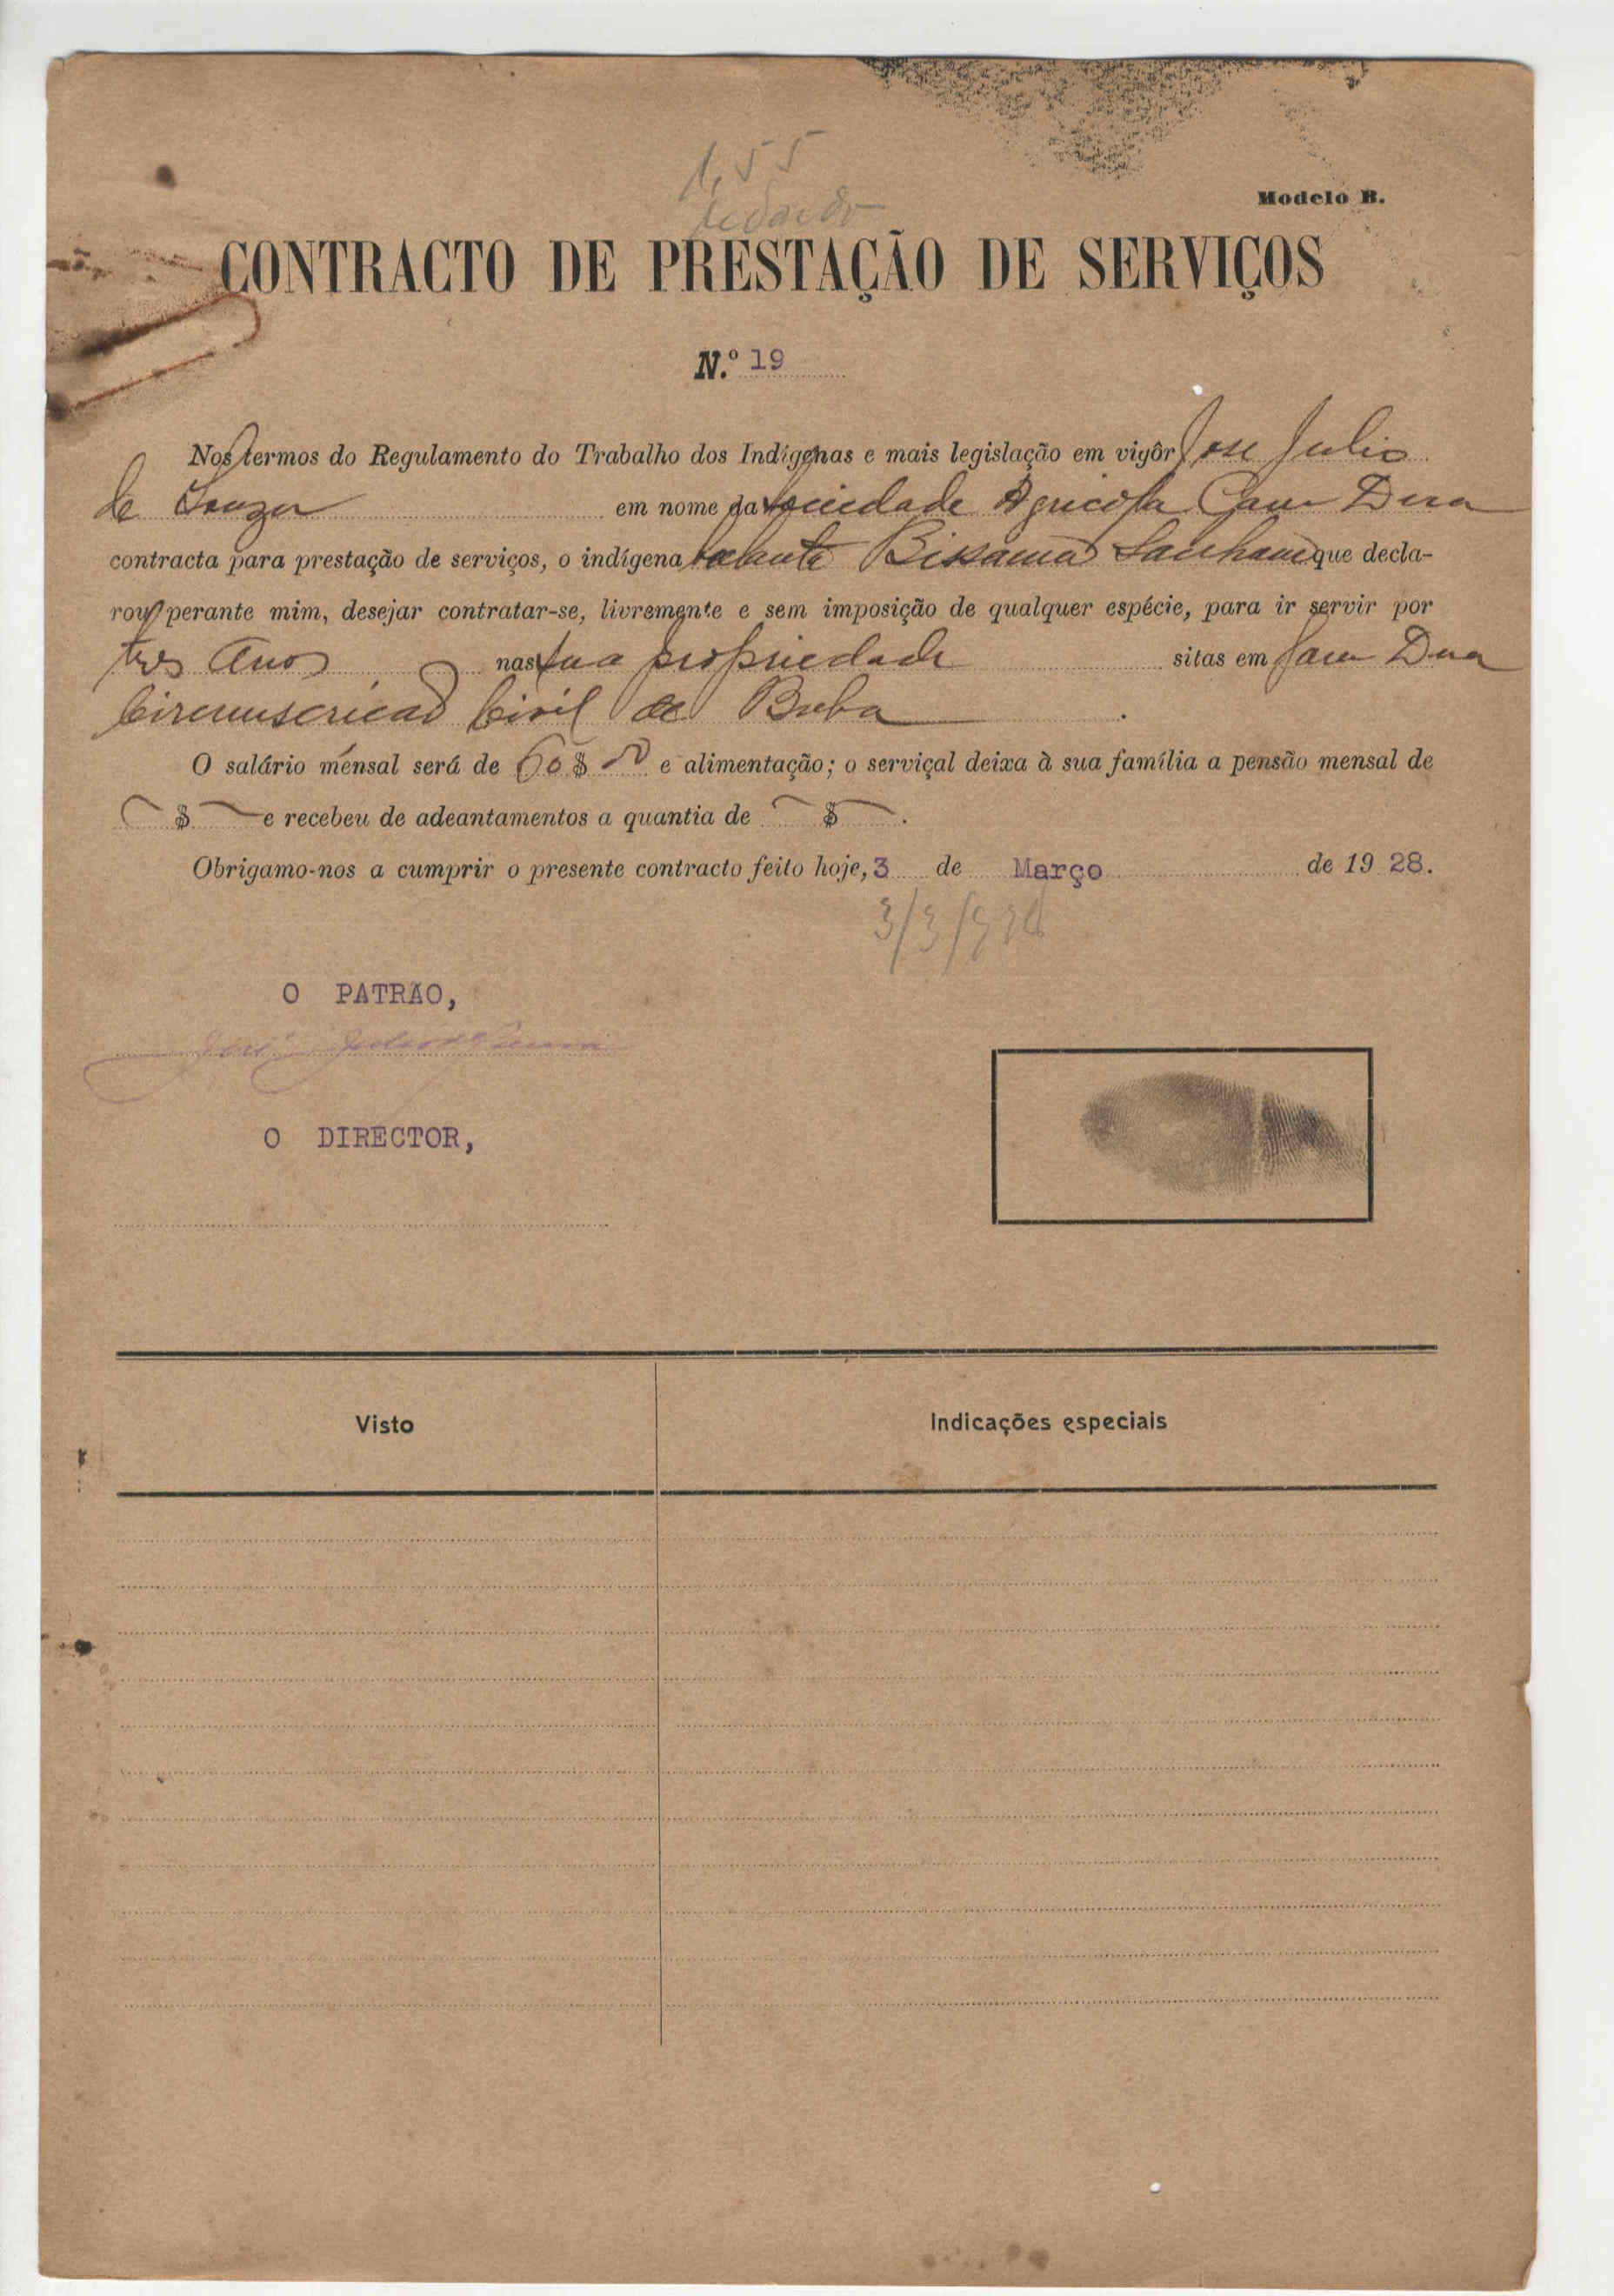 1,55
Modelo B.
CONTRACTO DE PRESTAÇÃO DE SERVIÇOS
N.º 19
Nos termos do Regulamento do Trabalho dos Indígenas e mais legislação em vigôr Jose Julio
de Souza em nome da Sociedade Agricola Cam Dua
contracta para prestação de serviços, o indígena Bissauna que decla-
rou perante mim, desejar contratar-se, livremente e sem imposição de qualquer espécie, para ir servir por
tres Anos nas sua propriedade sitas em Dua
Circunscricao Civil de Buba
O salário mensal será de 60 $ e alimentação; o serviçal deixa à sua família a pensão mensal de
$ e recebeu de adeantamentos a quantia de $ .
Obrigamo-nos a cumprir o presente contracto feito hoje, 3 de Março de 19 28.
3/3/
O PATRÃO,
José Julio de
O DIRECTOR,
Visto Indicações especiais